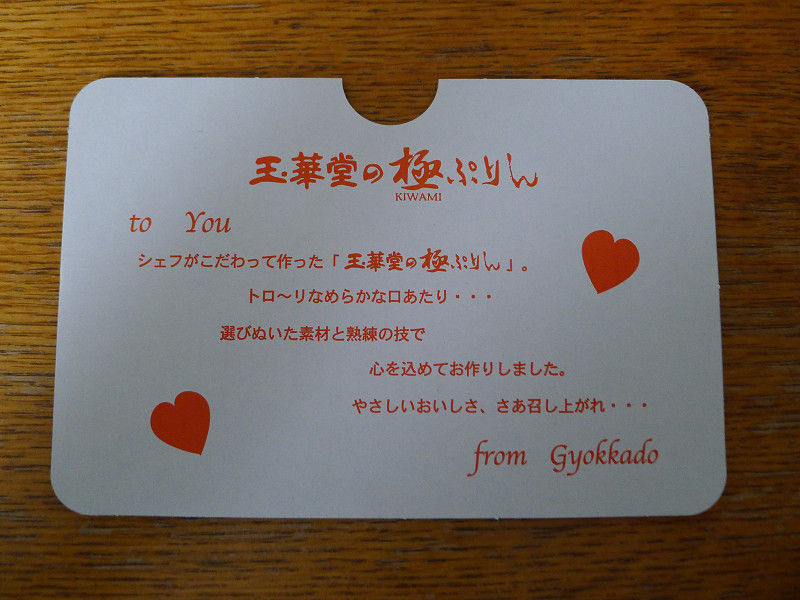 玉華堂の極ぷりん
KIWAMI
to You
シェフがこだわって作った「玉華堂の極ぷりん」。
トロ～リなめらかな口あたり・・・
選びぬいた素材と熟練の技で
心を込めてお作りしました。
やさしいおいしさ、さあ召し上がれ・・・
from Gyokkado